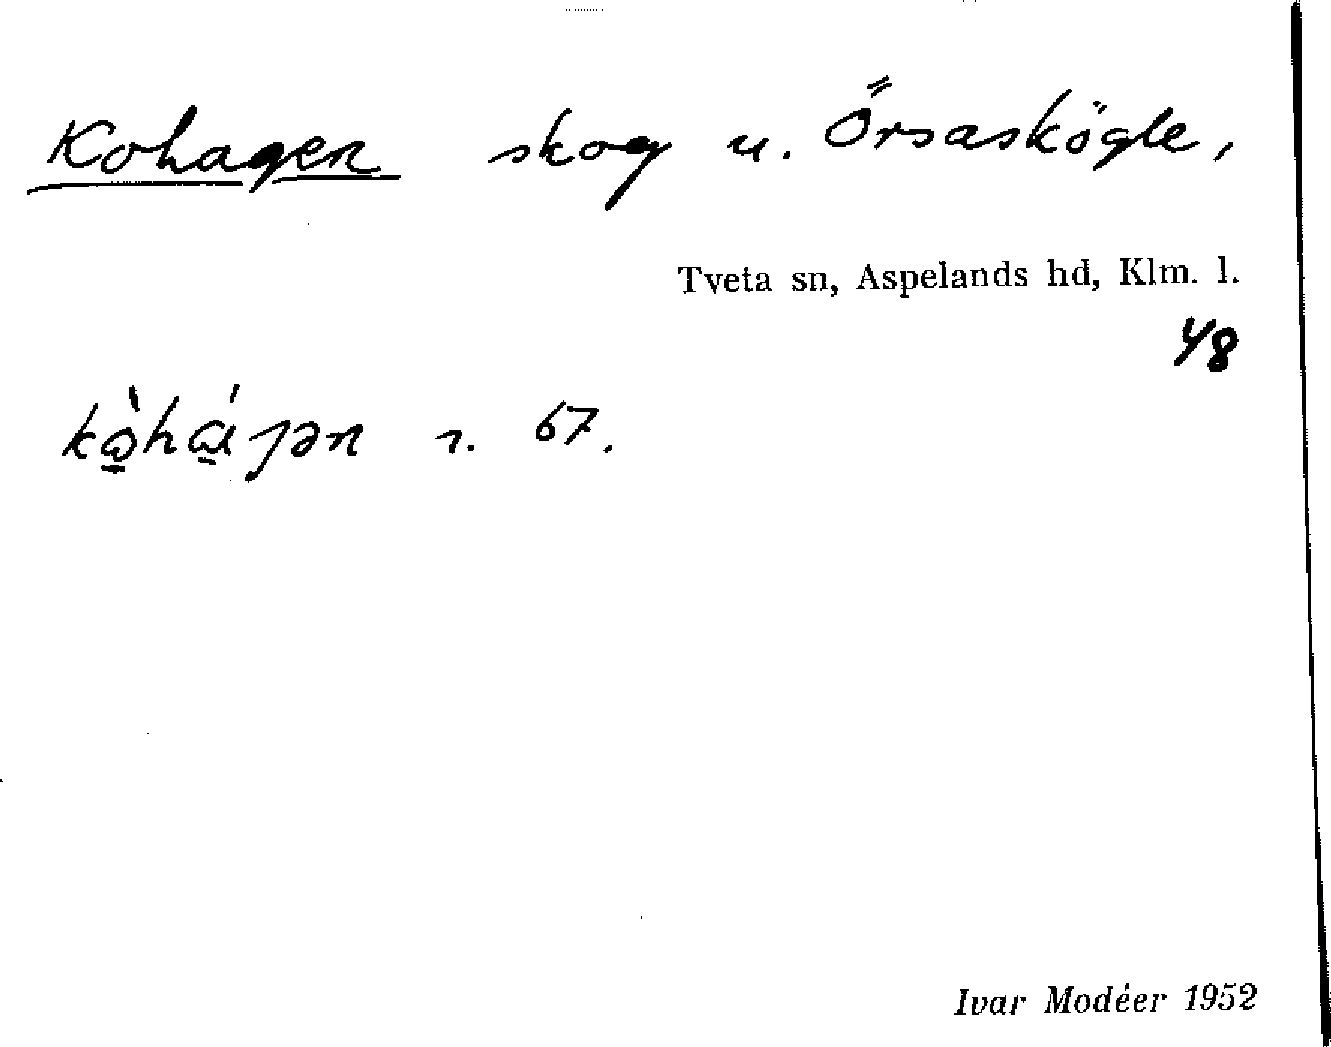 Kohagen skog u. Örsaskögle,
Tveta sn, Aspelands hd, Klm. l.
4/8
r. 67.
Ivar Modéer 1952